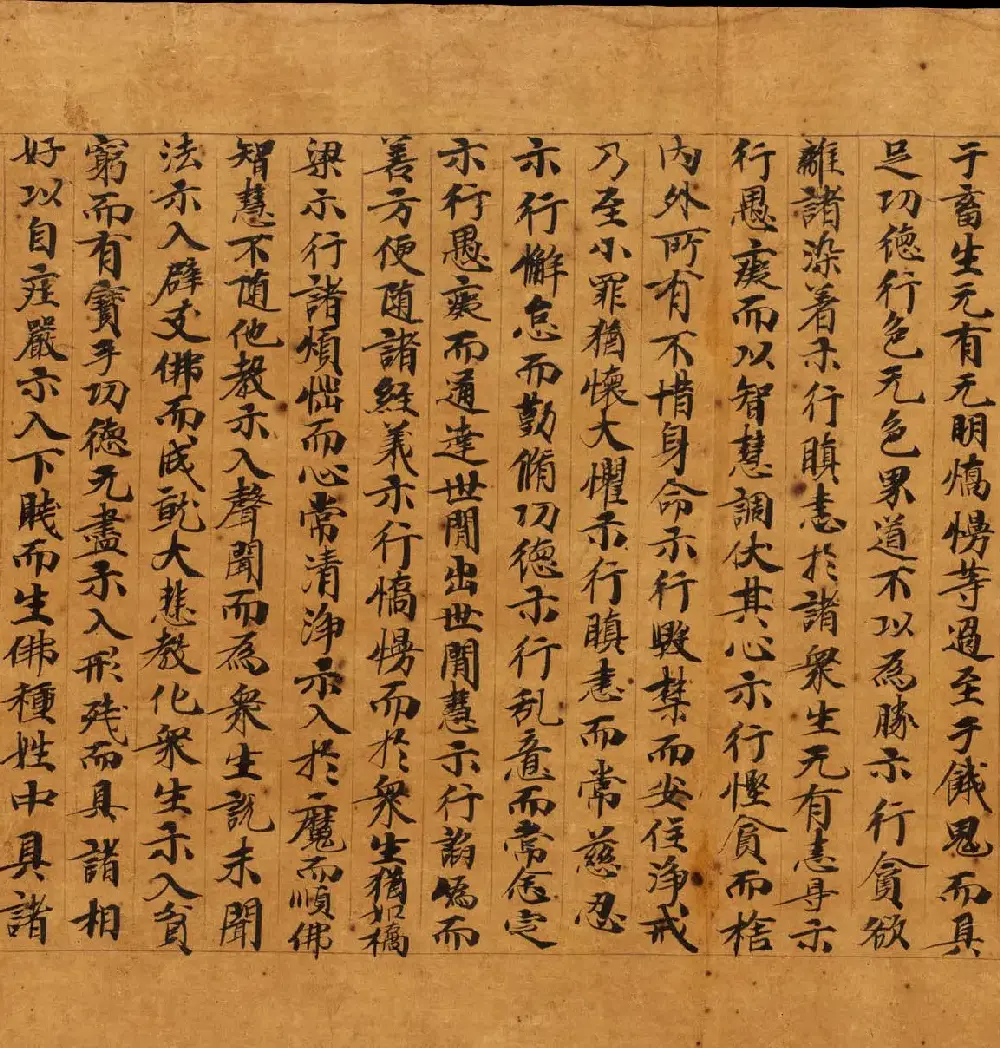 于畜生无有无明憍慢等過至于餓鬼而具
足功德行色无色界道不以為勝示行貪欲
離諸染着示行瞋恚於諸衆生无有恚㝵示
行愚癡而以智慧調伏其心示行慳貪而捨
內外所有不惜身命示行毀禁而安住淨戒
乃至小罪猶懷大懼示行瞋恚而常慈忍
示行懈怠而勤脩功德示行乱意而常念定
示行愚癡而通達世間出世間慧示行諂偽而
善方便随諸經義示行憍慢而於衆生猶如橋
梁示行諸煩惱而心常清淨示入於魔而順佛
智慧不随他教示入聲聞而為衆生說未聞
法示入辟支佛而成就大悲教化衆生示入貧
窮而有寶手功德无盡示入形殘而具諸相
好以自莊嚴示入下賤而生佛種姓中具諸